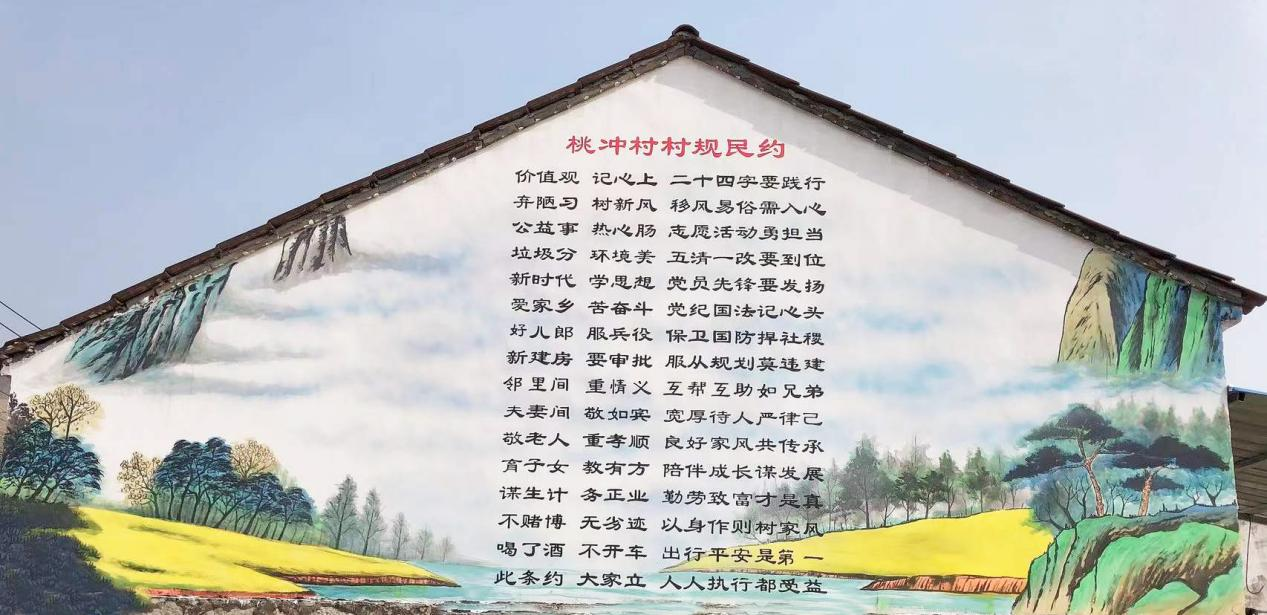 桃冲村村规民约
价值观 记心上 二十四字要践行
弃陋习 树新风 移风易俗需入心
公益事 热心肠 志愿活动勇担当
垃圾分 环境美 五清一改要到位
新时代 学思想 党员先锋要发扬
爱家乡 苦奋斗 党纪国法记心头
好儿郎 服兵役 保卫国防捍社稷
新建房 要审批 服从规划莫违建
邻里间 重情义 互帮互助如兄弟
夫妻间 敬如宾 宽厚待人严律己
敬老人 重孝顺 良好家风共传承
育子女 教有方 陪伴成长谋发展
谋生计 务正业 勤劳致富才是真
不赌博 无劣迹 以身作则树家风
喝了酒 不开车 出行平安是第一
此条约 大家立 人人执行都受益